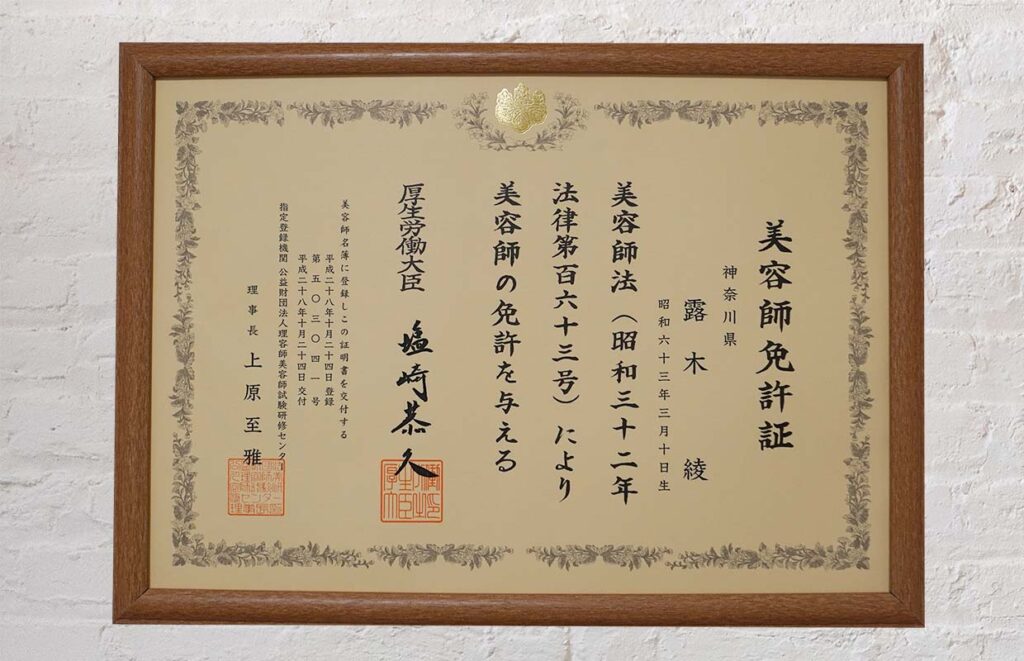 美容師免許証
神奈川県
露木 綾
昭和六十三年三月十日生
美容師法（昭和三十二年
法律第百六十三号）により
美容師の免許を与える
厚生労働大臣 塩崎恭久
美容師名簿に登録しこの証明書を交付する
平成二十八年十月二十四日登録
第五〇三〇四一号
平成二十八年十月二十四日交付
指定登録機関 公益財団法人理容師美容師試験研修センター
理事長 上原至雅